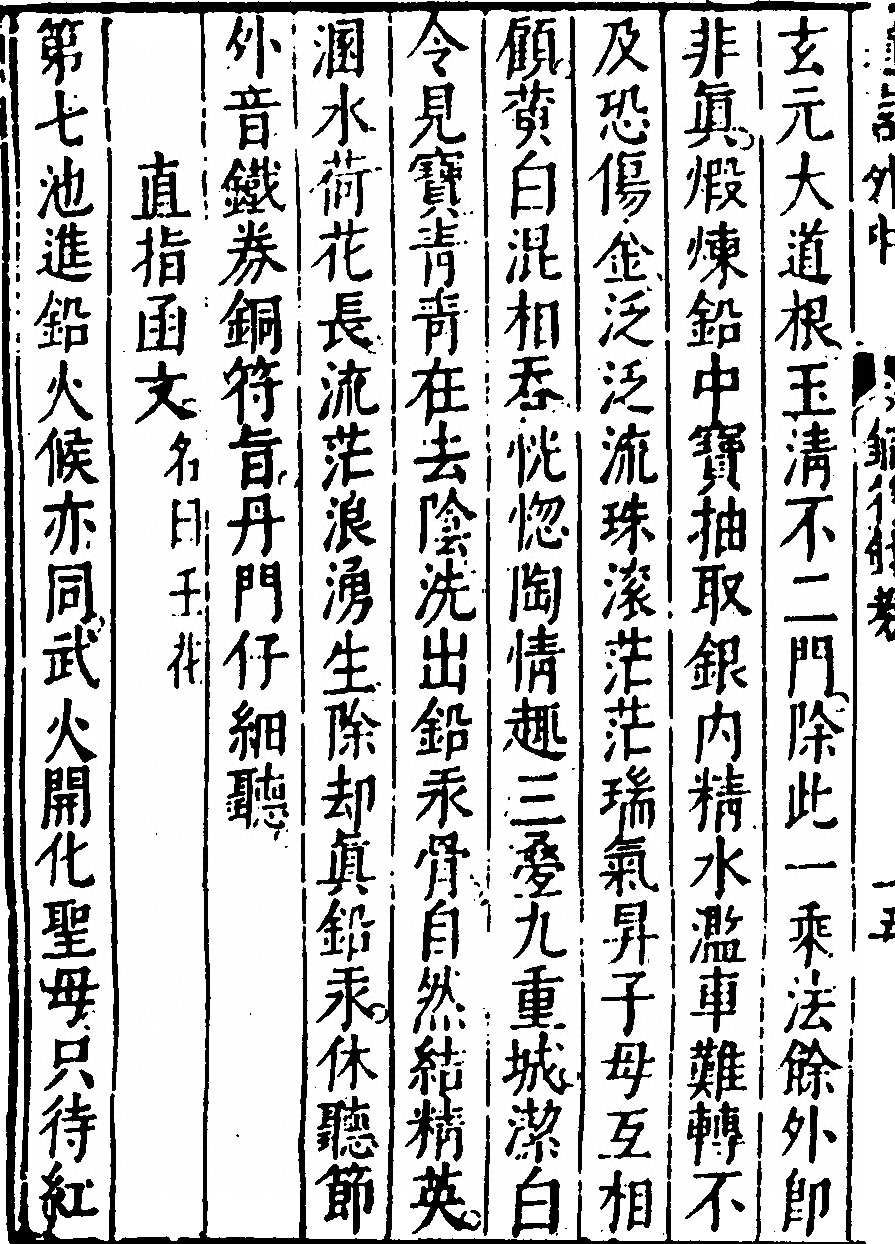 玄元大道根玉淸不二門除此一乘法餘外卽
非眞煆煉鉛中寶抽取銀內精水濫車難轉不
及恐傷金泛泛流珠滚茫茫瑞氣昇子母互相
顧黃白混相吞恍惚陶情趣三疊九重城潔白
令見寶靑靑在去陰洗出鉛汞骨自然結精英
溷水荷花長流茫浪湧生除却眞鉛汞休聽節
外音鐵券銅符旨丹門仔細聽
直指函文名曰壬花
第七池進鉛火候亦同武火開化聖母只待紅